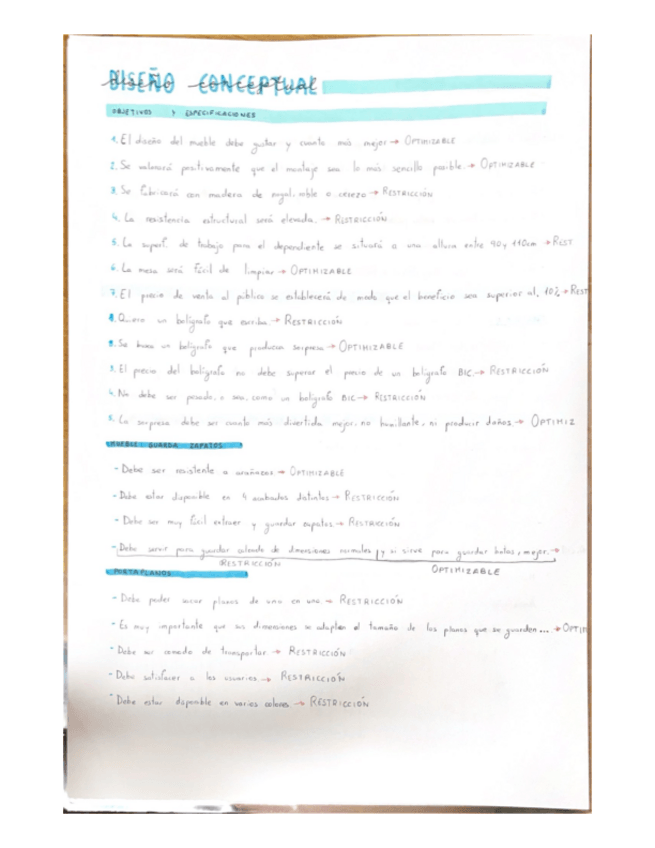 DISEÑO CONCEPTUAL
diseño conceptual
OBJETIVOS Y ESPECIFICACIONES
1. El diseño del mueble debe gustar y cuanto más mejor → OPTIMIZABLE
2. Se valorará positivamente que el montaje sea lo más sencillo posible. → OPTIMIZABLE
3. Se fabricará con madera de nogal, roble o cerezo → RESTRICCIÓN
4. La resistencia estructural será elevada. → RESTRICCIÓN
5. La superf. de trabajo para el dependiente se situará a una altura entre 90 y 110cm → REST
6. La mesa será fácil de limpiar → OPTIMIZABLE
7. El precio de venta al público se establecerá de modo que el beneficio sea superior al 10% → REST
1. Quiero un bolígrafo que escriba. → RESTRICCIÓN
2. Se busca un bolígrafo que produzca sorpresa → OPTIMIZABLE
3. El precio del bolígrafo no debe superar el precio de un bolígrafo BIC. → RESTRICCIÓN
4. No debe ser pesado, o sea, como un bolígrafo BIC → RESTRICCIÓN
5. La sorpresa debe ser cuanto más divertida mejor, no humillante, ni producir daños. → OPTIMIZ
MUEBLE GUARDA ZAPATOS
- Debe ser resistente a arañazos → OPTIMIZABLE
- Debe estar disponible en 4 acabados distintos → RESTRICCIÓN
- Debe ser muy fácil extraer y guardar zapatos → RESTRICCIÓN
- Debe servir para guardar calzado de dimensiones normales, y si sirve para guardar botas, mejor. →
RESTRICCIÓN OPTIMIZABLE
PORTAPLANOS
- Debe poder sacar planos de uno en uno → RESTRICCIÓN
- Es muy importante que sus dimensiones se adapten al tamaño de los planos que se guarden... → OPTIM
- Debe ser comodo de transportar. → RESTRICCIÓN
- Debe satisfacer a los usuarios. → RESTRICCIÓN
- Debe estar disponible en varios colores → RESTRICCIÓN